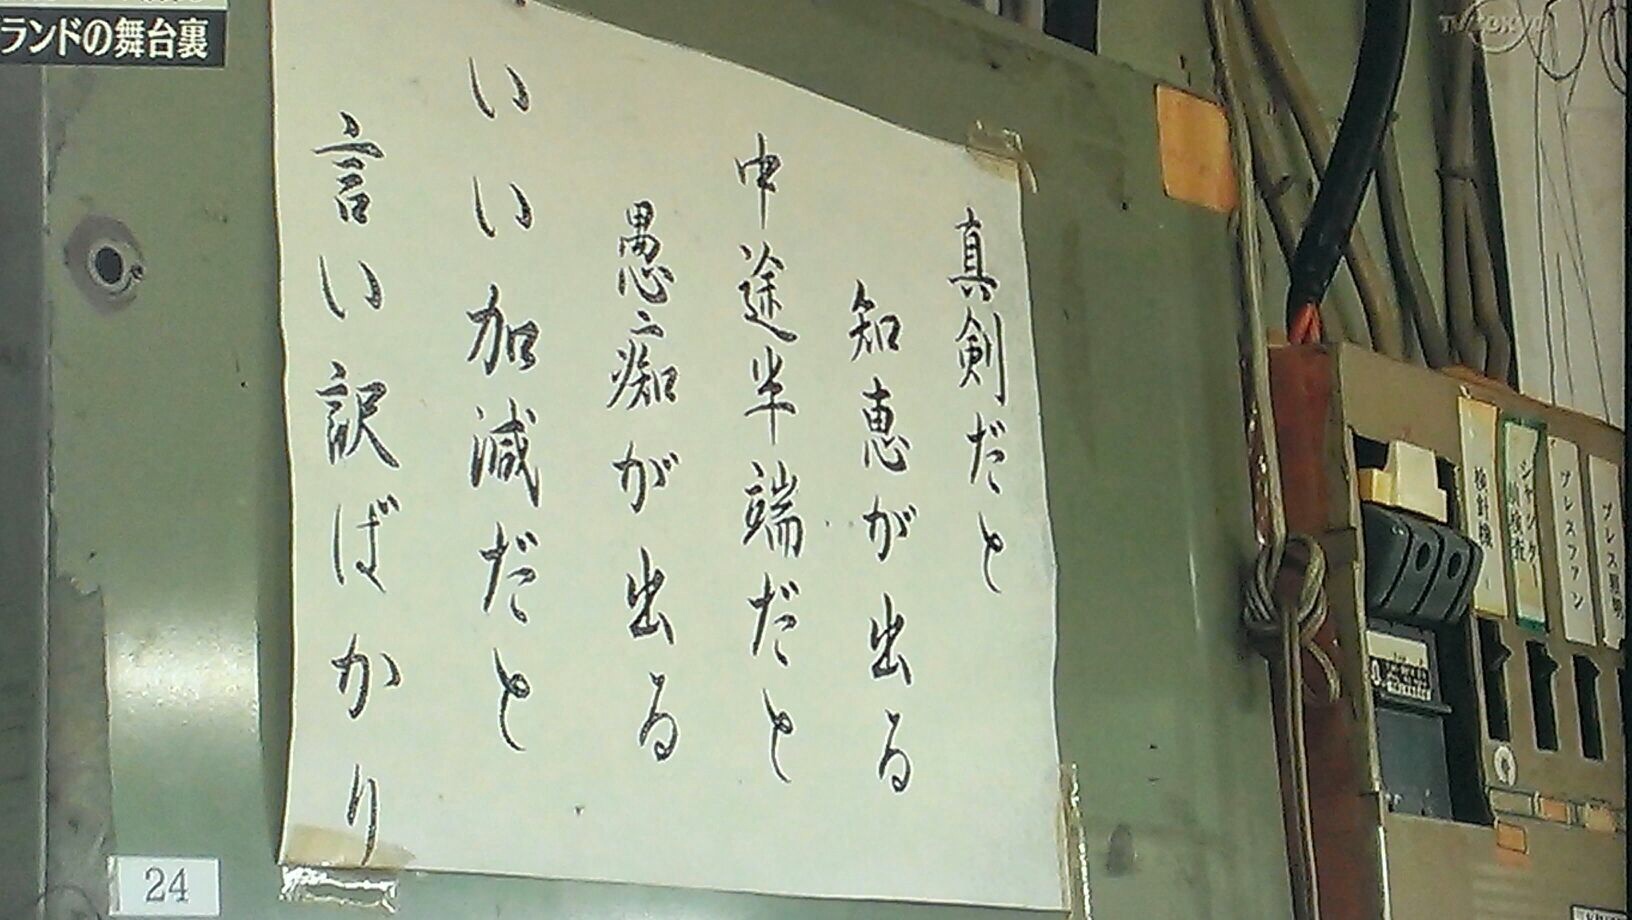 ランドの舞台裏
TV TOKYO
真剣だと
知恵が出る
中途半端だと
愚痴が出る
いい加減だと
言い訳ばかり
24
プレスファン
検針機